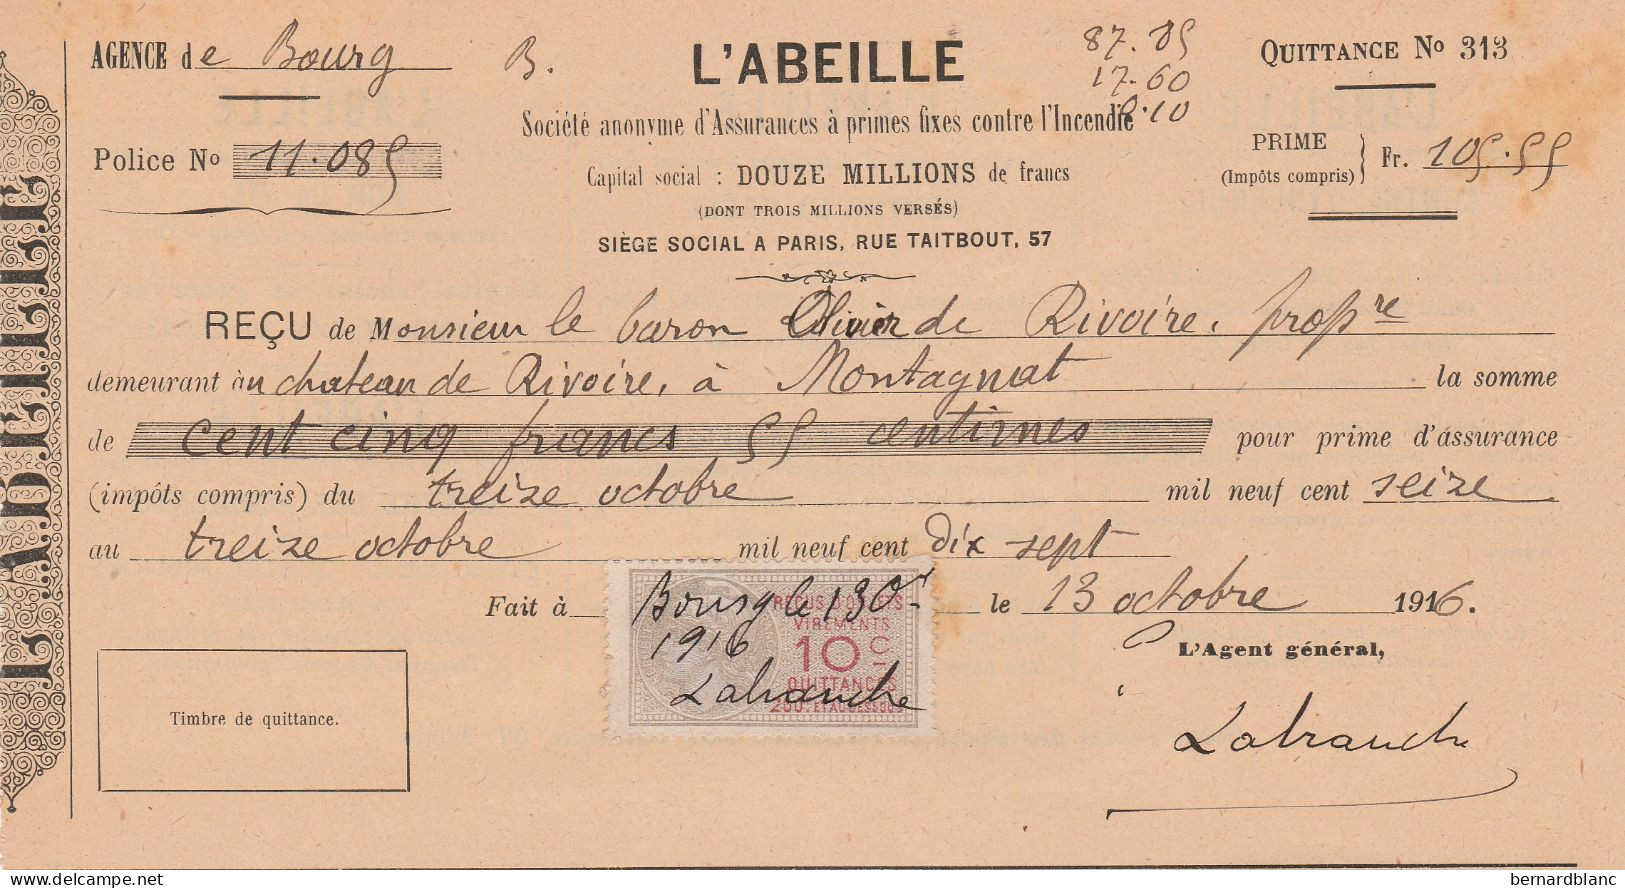 L'ABEILLE
AGENCE de Bourg
B.
L'ABEILLE
87.85
17.60
0.10
QUITTANCE No 313
Société anonyme d'Assurances à primes fixes contre l'Incendie
Police No 11.085
Capital social : DOUZE MILLIONS de francs
PRIME
(Impôts compris)
Fr. 105.55
(DONT TROIS MILLIONS VERSÉS)
SIÈGE SOCIAL A PARIS, RUE TAITBOUT, 57
REÇU de Monsieur le baron Olivier de Rivoire, propre
demeurant au chateau de Rivoire, à Montagnat la somme
de cent cinq francs 55 centimes pour prime d'assurance
(impôts compris) du treize octobre mil neuf cent seize
au treize octobre mil neuf cent dix sept
Fait à le 13 octobre 1916.
Bourg le 13 Or
1916
Labranche
REÇUS D'OBJETS
VIREMENTS
10 C
QUITTANCES
L'Agent général,
Labranche
Timbre de quittance.
delcampe.net
bernardblanc